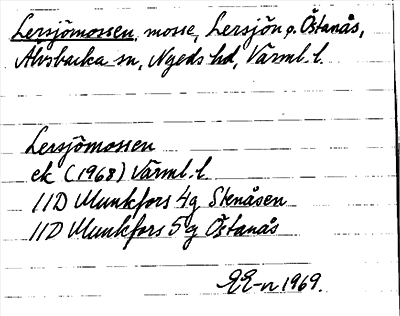 Lersjömossen, mosse, Lersjön o. Östanås,
Alvsbacka sn, Nyeds hd, Värml. l.
Lersjömossen
ek (1968) Värml. l
11D Munkfors 4g Stenåsen
11D Munkfors 5g Östanås
EE-n 1969.